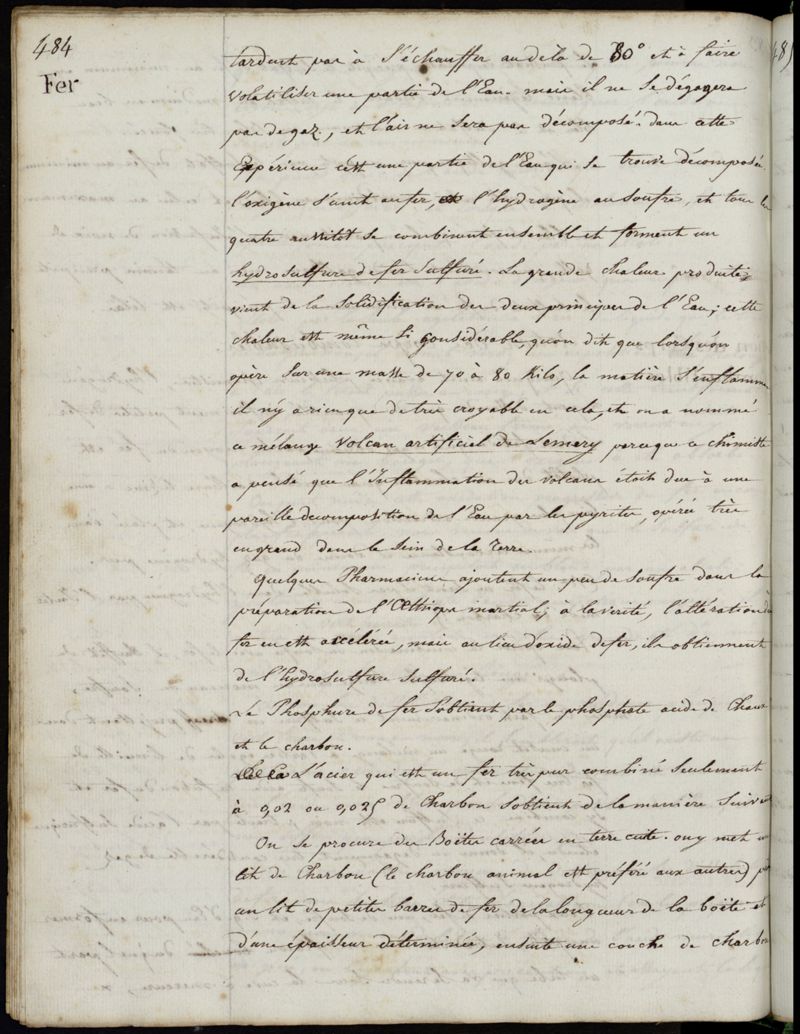 484
Fer
tardent pas à s'échauffer au delà de 80° et à faire
volatiliser une partie de l'Eau. mais il ne se dégagera
pas de gaz, et l'air ne sera pas décomposé. dans cette
Expérience cest une partie de l'Eau qui se trouve décomposée.
l'oxigène s'unit au fer, et l'hydrogène au soufre, et tous les
quatre aussitôt se combinent ensemble et forment un
hydrosulfure de fer sulfuré. La grande chaleur produite
vient de la solidification des deux principes de l'Eau; cette
chaleur est même si considérable, qu'on dit que lorsqu'on
opère sur une masse de 70 à 80 Kilo, la matière s'enflamme
il n'y a rien que de très croyable en cela, et on a nommé
ce mélange Volcan artificiel de Lemery parceque ce chimiste
a pensé que l'Inflammation des volcans étoit due à une
pareille decomposition de l'Eau par les pyrites, opérée très
en grand dans le sein de la Terre.
Quelques Pharmaciens ajoutent un peu de soufre dans la
préparation de l'OEthiops martial; à la verité, l'altération du
fer en est accélérée, mais au lieu d'oxide de fer, ils obtiennent
de l'hydrosulfure sulfuré.
Le Phosphure de fer s'obtient par le phosphate acide de Chaux
et le charbon.
L'acier qui est un fer très pur combiné seulement
à 0,02 ou 0,025 de Charbon s'obtient de la manière suivante
On se procure des Boëtes carrées en terre cuite. on y met un
lit de Charbon (le charbon animal est préféré aux autres) puis
un lit de petites barres de fer de la longueur de la boëte et
d'une épaisseur déterminée, ensuite une couche de charbon